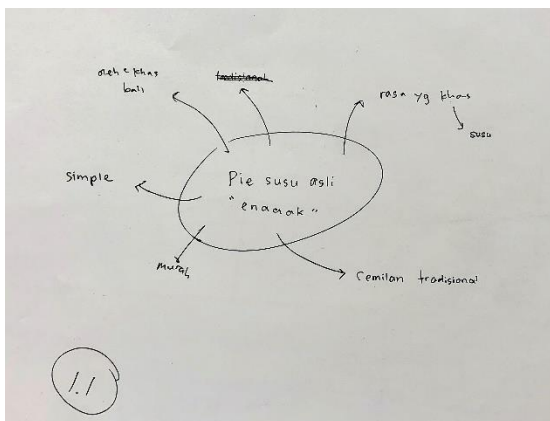 oleh² khas
bali
tradisional
rasa yg khas
susu
simple
Pie susu asli
"enaaak"
murah
Cemilan tradisional
1.1